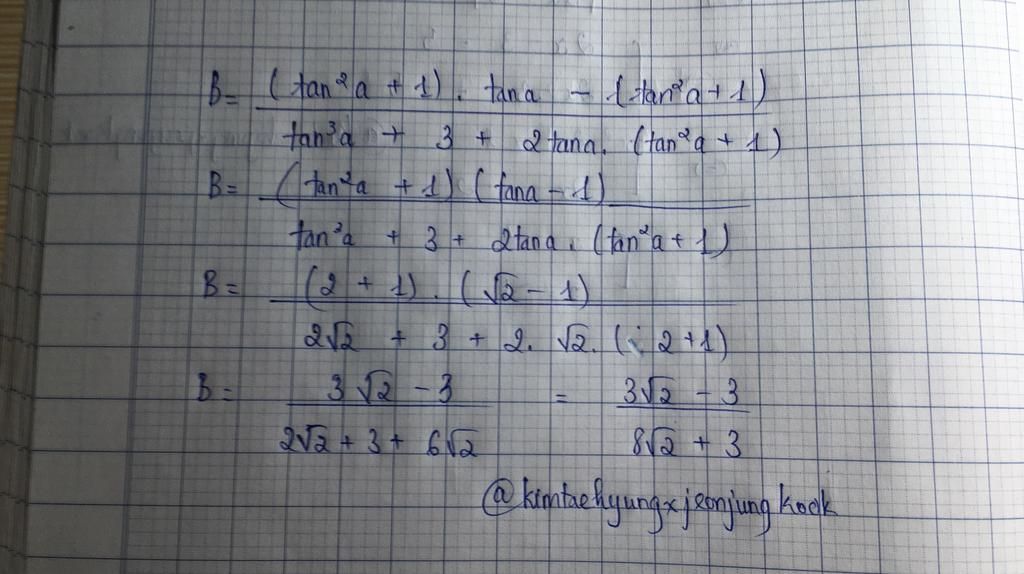 B = (tan²a + 1) . tana - (tan²a + 1)
tan³a + 3 + 2tana. (tan²a + 1)
B = (tan²a + 1) (tana - 1)
tan³a + 3 + 2tana. (tan²a + 1)
B = (2 + 1) . (√2 - 1)
2√2 + 3 + 2. √2. (2+1)
B = 3√2 - 3 = 3√2 - 3
2√2 + 3 + 6√2 8√2 + 3
@kimtaehyungxjeonjungkook